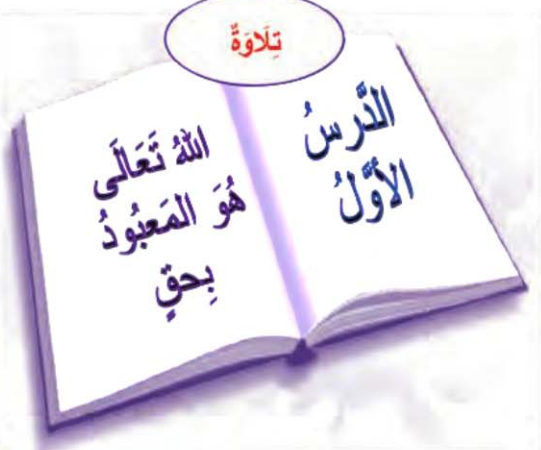 تِلَاوَةٌ
الدَّرسُ
الأَوَّلُ
اللهُ تَعَالَى
هُوَ المَعبُودُ
بِحقٍ